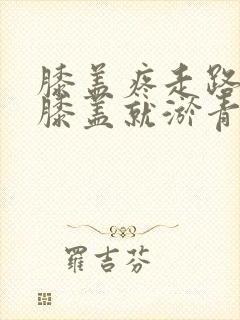 膝盖疼走路
膝盖就淤青
羅吉芬